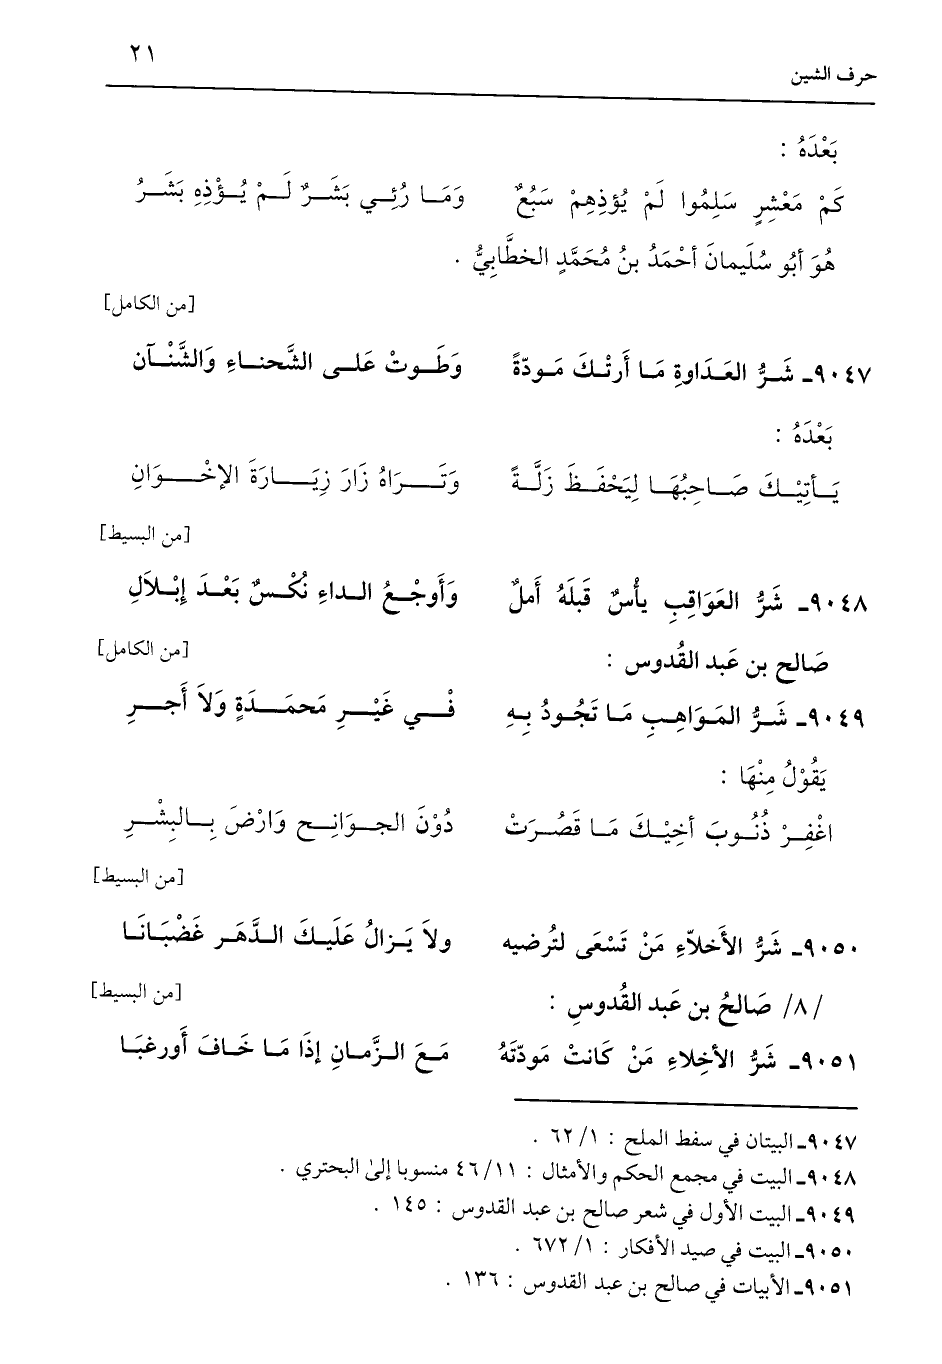 ٢١
حرف الشين
بَعْدَهُ :
كَمْ مَعْشِرٍ سَلِمُوا لَمْ يُؤذِهِمْ سَبُعٌ وَمَـا رُئِـي بَشَـرٌ لَـمْ يُـؤْذِهِ بَشَـرُ
هُوَ أبُو سُلَيمانَ أحْمَدُ بنُ مُحَمَّدٍ الخطَّابِيُّ .
[من الكامل]
٩٠٤٧ـ شَـرُّ العَـدَاوةِ مَـا أَرتْـكَ مَـودّةً وَطَـوتْ عَلـى الشَّحنـاءِ وَالشَّنْـآن
بَعْدَهُ :
يَـأتِيْـكَ صَـاحِبُهَـا لِيَحْفَـظَ زَلَّـةً وَتَـرَاهُ زَارَ زِيَـارَةَ الإخْـوَانِ
[من البسيط]
٩٠٤٨ـ شَرُّ العَوَاقِبِ يأْسٌ قَبلَهُ أَملٌ وَأَوجْـعُ الـداءِ نُكْـسٌ بَعْـدَ إبْـلاَلِ
[من الكامل]
صَالح بن عَبد القُدوس :
٩٠٤٩ـ شَـرُّ المَـوَاهِـبِ مَـا تَجُـودُ بِـهِ فْـي غَيْـرِ مَحمَـدَةٍ وَلاَ أَجـرِ
يَقُوْلُ مِنْهَا :
اغْفِـرْ ذُنُوبَ أخِيْـكَ مَـا قَصُـرَتْ دُوْنَ الجـوَانِـح وَارْضَ بِـالبِشْـرِ
[من البسيط]
٩٠٥٠ـ شَرُّ الأَخلاّءِ مَنْ تَسْعَى لتُرضيه ولاَ يَـزالُ عَلَيـكَ الـدَّهَـر غَضْبَـانَـا
[من البسيط]
/٨/ صَالحُ بن عَبد القُدوسِ :
٩٠٥١ـ شَرُّ الأخِلاءِ مَنْ كَانتْ مَودّتَهُ مَـعَ الـزَّمـانِ إذَا مَـا خَـافَ أَورغبَـا
٩٠٤٧ـ البيتان في سفط الملح : ١/ ٦٢ .
٩٠٤٨ـ البيت في مجمع الحكم والأمثال : ١١/ ٤٦ منسوبا إلىٰ البحتري .
٩٠٤٩ـ البيت الأول في شعر صالح بن عبد القدوس : ١٤٥ .
٩٠٥٠ـ البيت في صيد الأفكار : ١/ ٦٧٢ .
٩٠٥١ـ الأبيات في صالح بن عبد القدوس : ١٣٦ .